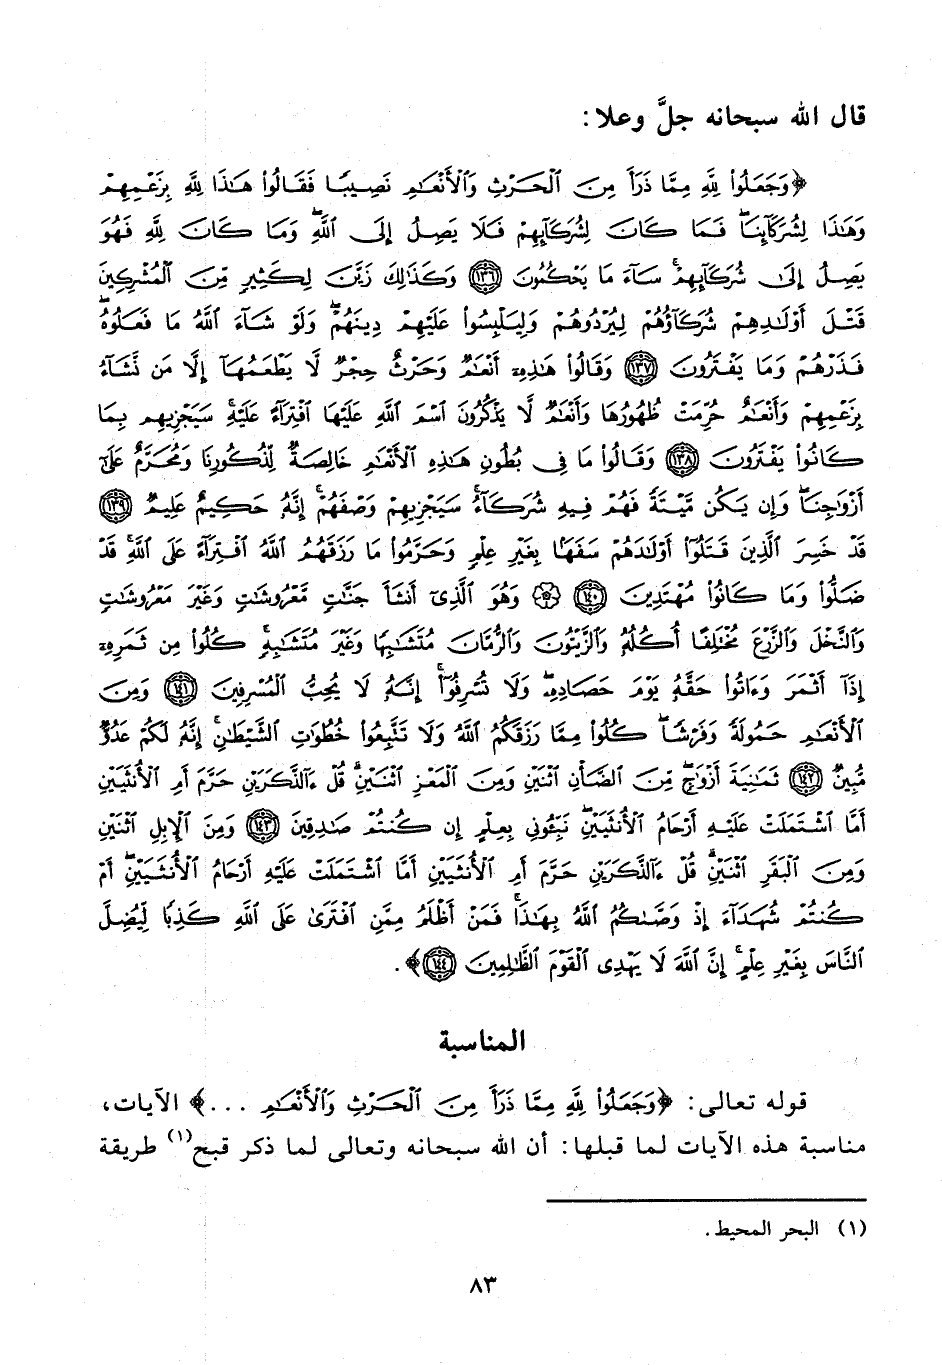 قال الله سبحانه جلَّ وعلا:
﴿وَجَعَلُوا۟ لِلَّهِ مِمَّا ذَرَأَ مِنَ ٱلْحَرْثِ وَٱلْأَنْعَـٰمِ نَصِيبًا فَقَالُوا۟ هَـٰذَا لِلَّهِ بِزَعْمِهِمْ
وَهَـٰذَا لِشُرَكَآئِنَا ۖ فَمَا كَانَ لِشُرَكَآئِهِمْ فَلَا يَصِلُ إِلَى ٱللَّهِ ۖ وَمَا كَانَ لِلَّهِ فَهُوَ
يَصِلُ إِلَىٰ شُرَكَآئِهِمْ ۗ سَآءَ مَا يَحْكُمُونَ ﴿١٣٦﴾ وَكَذَٰلِكَ زَيَّنَ لِكَثِيرٍ مِّنَ ٱلْمُشْرِكِينَ
قَتْلَ أَوْلَـٰدِهِمْ شُرَكَآؤُهُمْ لِيُرْدُوهُمْ وَلِيَلْبِسُوا۟ عَلَيْهِمْ دِينَهُمْ ۖ وَلَوْ شَآءَ ٱللَّهُ مَا فَعَلُوهُ ۖ
فَذَرْهُمْ وَمَا يَفْتَرُونَ ﴿١٣٧﴾ وَقَالُوا۟ هَـٰذِهِۦٓ أَنْعَـٰمٌ وَحَرْثٌ حِجْرٌ لَّا يَطْعَمُهَآ إِلَّا مَن نَّشَآءُ
بِزَعْمِهِمْ وَأَنْعَـٰمٌ حُرِّمَتْ ظُهُورُهَا وَأَنْعَـٰمٌ لَّا يَذْكُرُونَ ٱسْمَ ٱللَّهِ عَلَيْهَا ٱفْتِرَآءً عَلَيْهِ ۚ سَيَجْزِيهِم بِمَا
كَانُوا۟ يَفْتَرُونَ ﴿١٣٨﴾ وَقَالُوا۟ مَا فِى بُطُونِ هَـٰذِهِ ٱلْأَنْعَـٰمِ خَالِصَةٌ لِّذُكُورِنَا وَمُحَرَّمٌ عَلَىٰٓ
أَزْوَٰجِنَا ۖ وَإِن يَكُن مَّيْتَةً فَهُمْ فِيهِ شُرَكَآءُ ۚ سَيَجْزِيهِمْ وَصْفَهُمْ ۚ إِنَّهُۥ حَكِيمٌ عَلِيمٌ ﴿١٣٩﴾
قَدْ خَسِرَ ٱلَّذِينَ قَتَلُوٓا۟ أَوْلَـٰدَهُمْ سَفَهًۢا بِغَيْرِ عِلْمٍ وَحَرَّمُوا۟ مَا رَزَقَهُمُ ٱللَّهُ ٱفْتِرَآءً عَلَى ٱللَّهِ ۚ قَدْ
ضَلُّوا۟ وَمَا كَانُوا۟ مُهْتَدِينَ ﴿١٤٠﴾ ۞ وَهُوَ ٱلَّذِىٓ أَنشَأَ جَنَّـٰتٍ مَّعْرُوشَـٰتٍ وَغَيْرَ مَعْرُوشَـٰتٍ
وَٱلنَّخْلَ وَٱلزَّرْعَ مُخْتَلِفًا أُكُلُهُۥ وَٱلزَّيْتُونَ وَٱلرُّمَّانَ مُتَشَـٰبِهًا وَغَيْرَ مُتَشَـٰبِهٍ ۚ كُلُوا۟ مِن ثَمَرِهِۦٓ
إِذَآ أَثْمَرَ وَءَاتُوا۟ حَقَّهُۥ يَوْمَ حَصَادِهِۦ ۖ وَلَا تُسْرِفُوٓا۟ ۚ إِنَّهُۥ لَا يُحِبُّ ٱلْمُسْرِفِينَ ﴿١٤١﴾ وَمِنَ
ٱلْأَنْعَـٰمِ حَمُولَةً وَفَرْشًا ۚ كُلُوا۟ مِمَّا رَزَقَكُمُ ٱللَّهُ وَلَا تَتَّبِعُوا۟ خُطُوَٰتِ ٱلشَّيْطَـٰنِ ۚ إِنَّهُۥ لَكُمْ عَدُوٌّ
مُّبِينٌ ﴿١٤٢﴾ ثَمَـٰنِيَةَ أَزْوَٰجٍ ۖ مِّنَ ٱلضَّأْنِ ٱثْنَيْنِ وَمِنَ ٱلْمَعْزِ ٱثْنَيْنِ ۗ قُلْ ءَآلذَّكَرَيْنِ حَرَّمَ أَمِ ٱلْأُنثَيَيْنِ
أَمَّا ٱشْتَمَلَتْ عَلَيْهِ أَرْحَامُ ٱلْأُنثَيَيْنِ ۖ نَبِّـُٔونِى بِعِلْمٍ إِن كُنتُمْ صَـٰدِقِينَ ﴿١٤٣﴾ وَمِنَ ٱلْإِبِلِ ٱثْنَيْنِ
وَمِنَ ٱلْبَقَرِ ٱثْنَيْنِ ۗ قُلْ ءَآلذَّكَرَيْنِ حَرَّمَ أَمِ ٱلْأُنثَيَيْنِ أَمَّا ٱشْتَمَلَتْ عَلَيْهِ أَرْحَامُ ٱلْأُنثَيَيْنِ ۖ أَمْ
كُنتُمْ شُهَدَآءَ إِذْ وَصَّىٰكُمُ ٱللَّهُ بِهَـٰذَا ۚ فَمَنْ أَظْلَمُ مِمَّنِ ٱفْتَرَىٰ عَلَى ٱللَّهِ كَذِبًا لِّيُضِلَّ
ٱلنَّاسَ بِغَيْرِ عِلْمٍ ۗ إِنَّ ٱللَّهَ لَا يَهْدِى ٱلْقَوْمَ ٱلظَّـٰلِمِينَ ﴿١٤٤﴾﴾.
المناسبة
قوله تعالى: ﴿وَجَعَلُوا۟ لِلَّهِ مِمَّا ذَرَأَ مِنَ ٱلْحَرْثِ وَٱلْأَنْعَـٰمِ ...﴾ الآيات،
مناسبة هذه الآيات لما قبلها: أن الله سبحانه وتعالى لما ذكر قبح(١) طريقة
(١) البحر المحيط.
٨٣